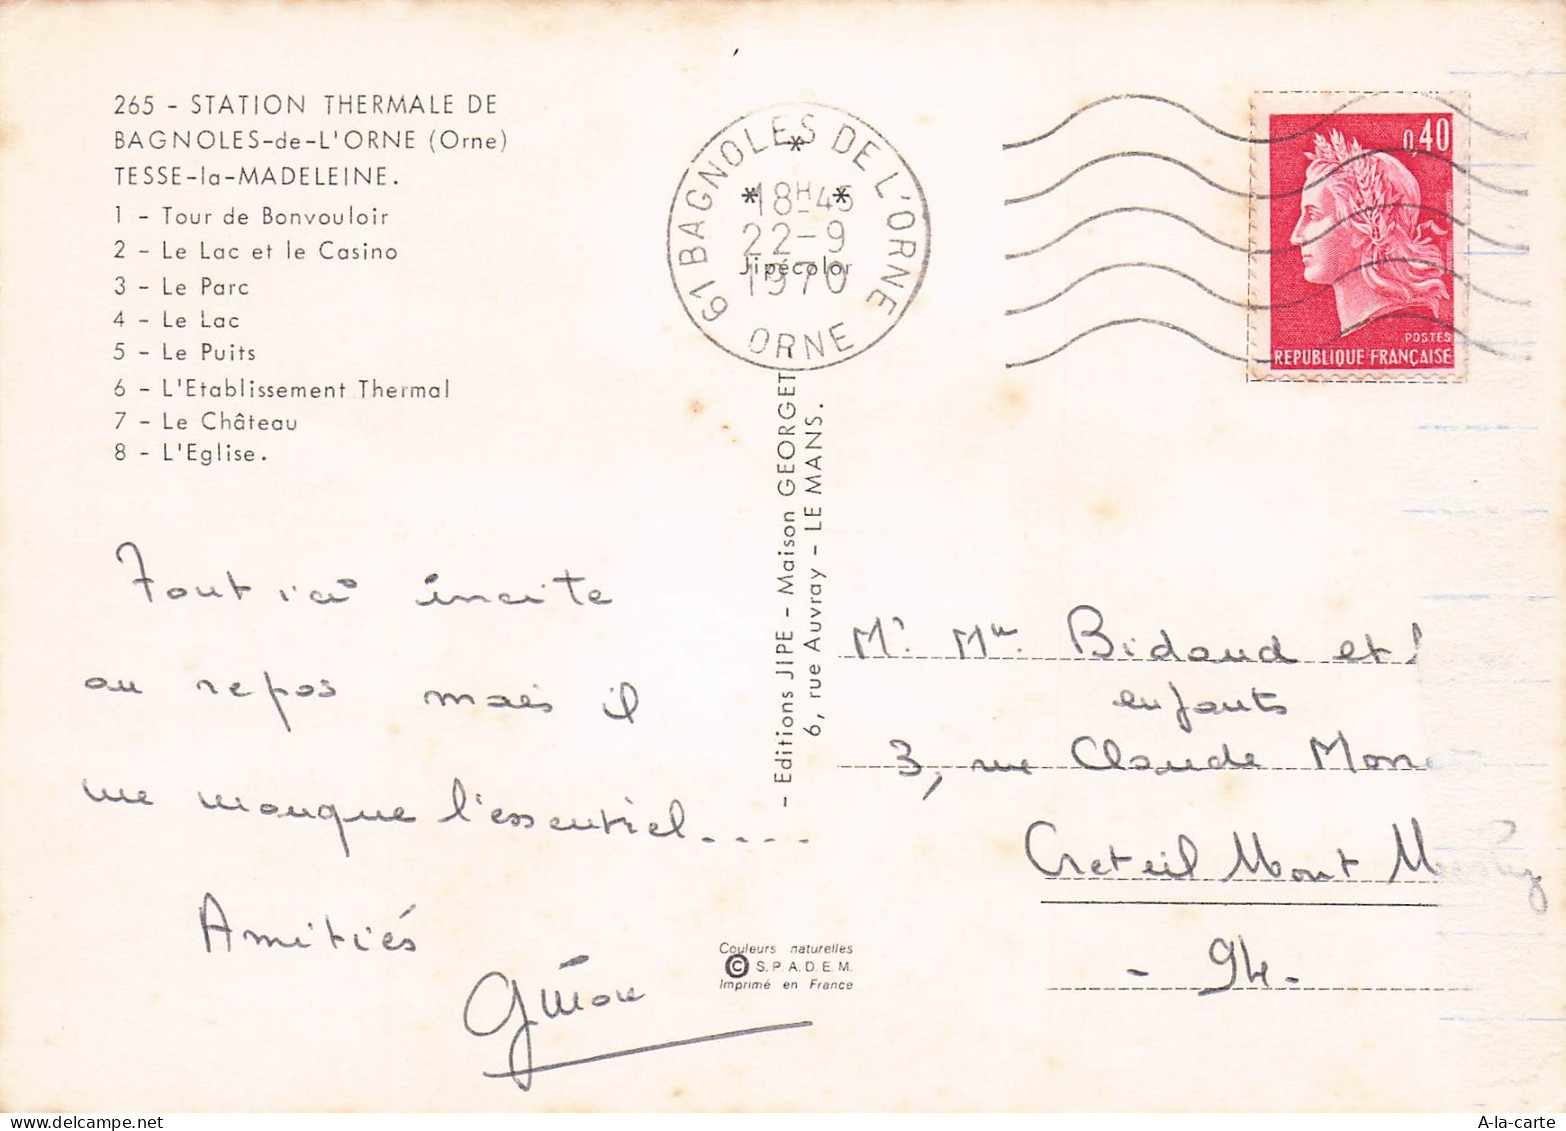 265 - STATION THERMALE DE
BAGNOLES-de-L'ORNE (Orne)
TESSE-la-MADELEINE.
1 - Tour de Bonvouloir
2 - Le Lac et le Casino
3 - Le Parc
4 - Le Lac
5 - Le Puits
6 - L'Etablissement Thermal
7 - Le Château
8 - L'Eglise.
61 BAGNOLES DE L'ORNE
18H45
22-9
1970
ORNE
Jipécolor
0,40
POSTES
REPUBLIQUE FRANÇAISE
- Editions JIPE - Maison GEORGET
6, rue Auvray - LE MANS.
Tout ici incite
au repos mais il
me manque l'essentiel....
Amitiés
Mr. Mme. Bidaud et
enfants
3, rue Claude
Creteil Mont
- 94 -
Couleurs naturelles
© S.P.A.D.E.M.
Imprimé en France
A-la-carte